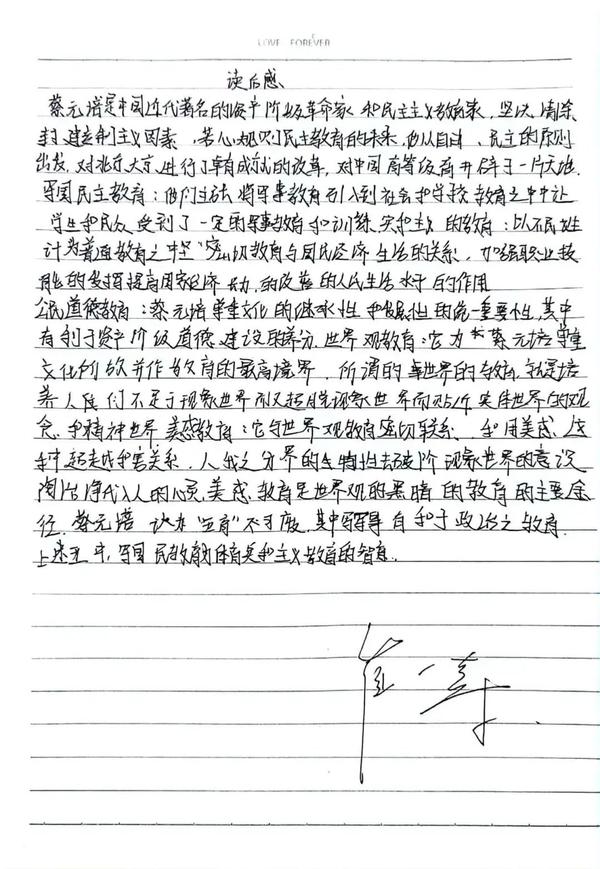 LOVE FOREVER
读后感
蔡元培是中国近代著名的资产阶级革命家和民主主义教育家,坚决清除
封建专制主义因素,苦心规划民主教育的未来,他从自由、民主的原则
出发,对北京大学进行了卓有成就的改革,对中国高等教育开辟了一片天地.
军国民主教育:他们主张将军事教育引入到社会和学校教育之中让
学生和民众受到了一定的军事教育和训练.实利主义的教育:以人民生
计为普通教育之中坚"密切教育与国民经济生活的关系,加强职业技
能的发挥提高国家经济力的改善的人民生活水平的作用
公民道德教育:蔡元培尊重文化的继承性和发展性的统一重要性,其中
有利于资产阶级道德建设的养分.世界观教育:它为蔡元培尊重
文化所欣并作教育的最高境界,所谓的世界的教育,就是培
养人民们不足于现象世界而又超脱现象世界而贴近实体世界的观
念和精神世界.美感教育:它与世界观教育密切联系.利用美感,
超走成利害关系,人我之分界的生物性去破除现象世界的意识
陶冶净化人的心灵,美感教育是世界观的黑暗的教育的主要途
径.蔡元培认为"五育"不可废,其中军事自和于政治之教育.
上述五中,军国民教育体育实利主义教育的智育.